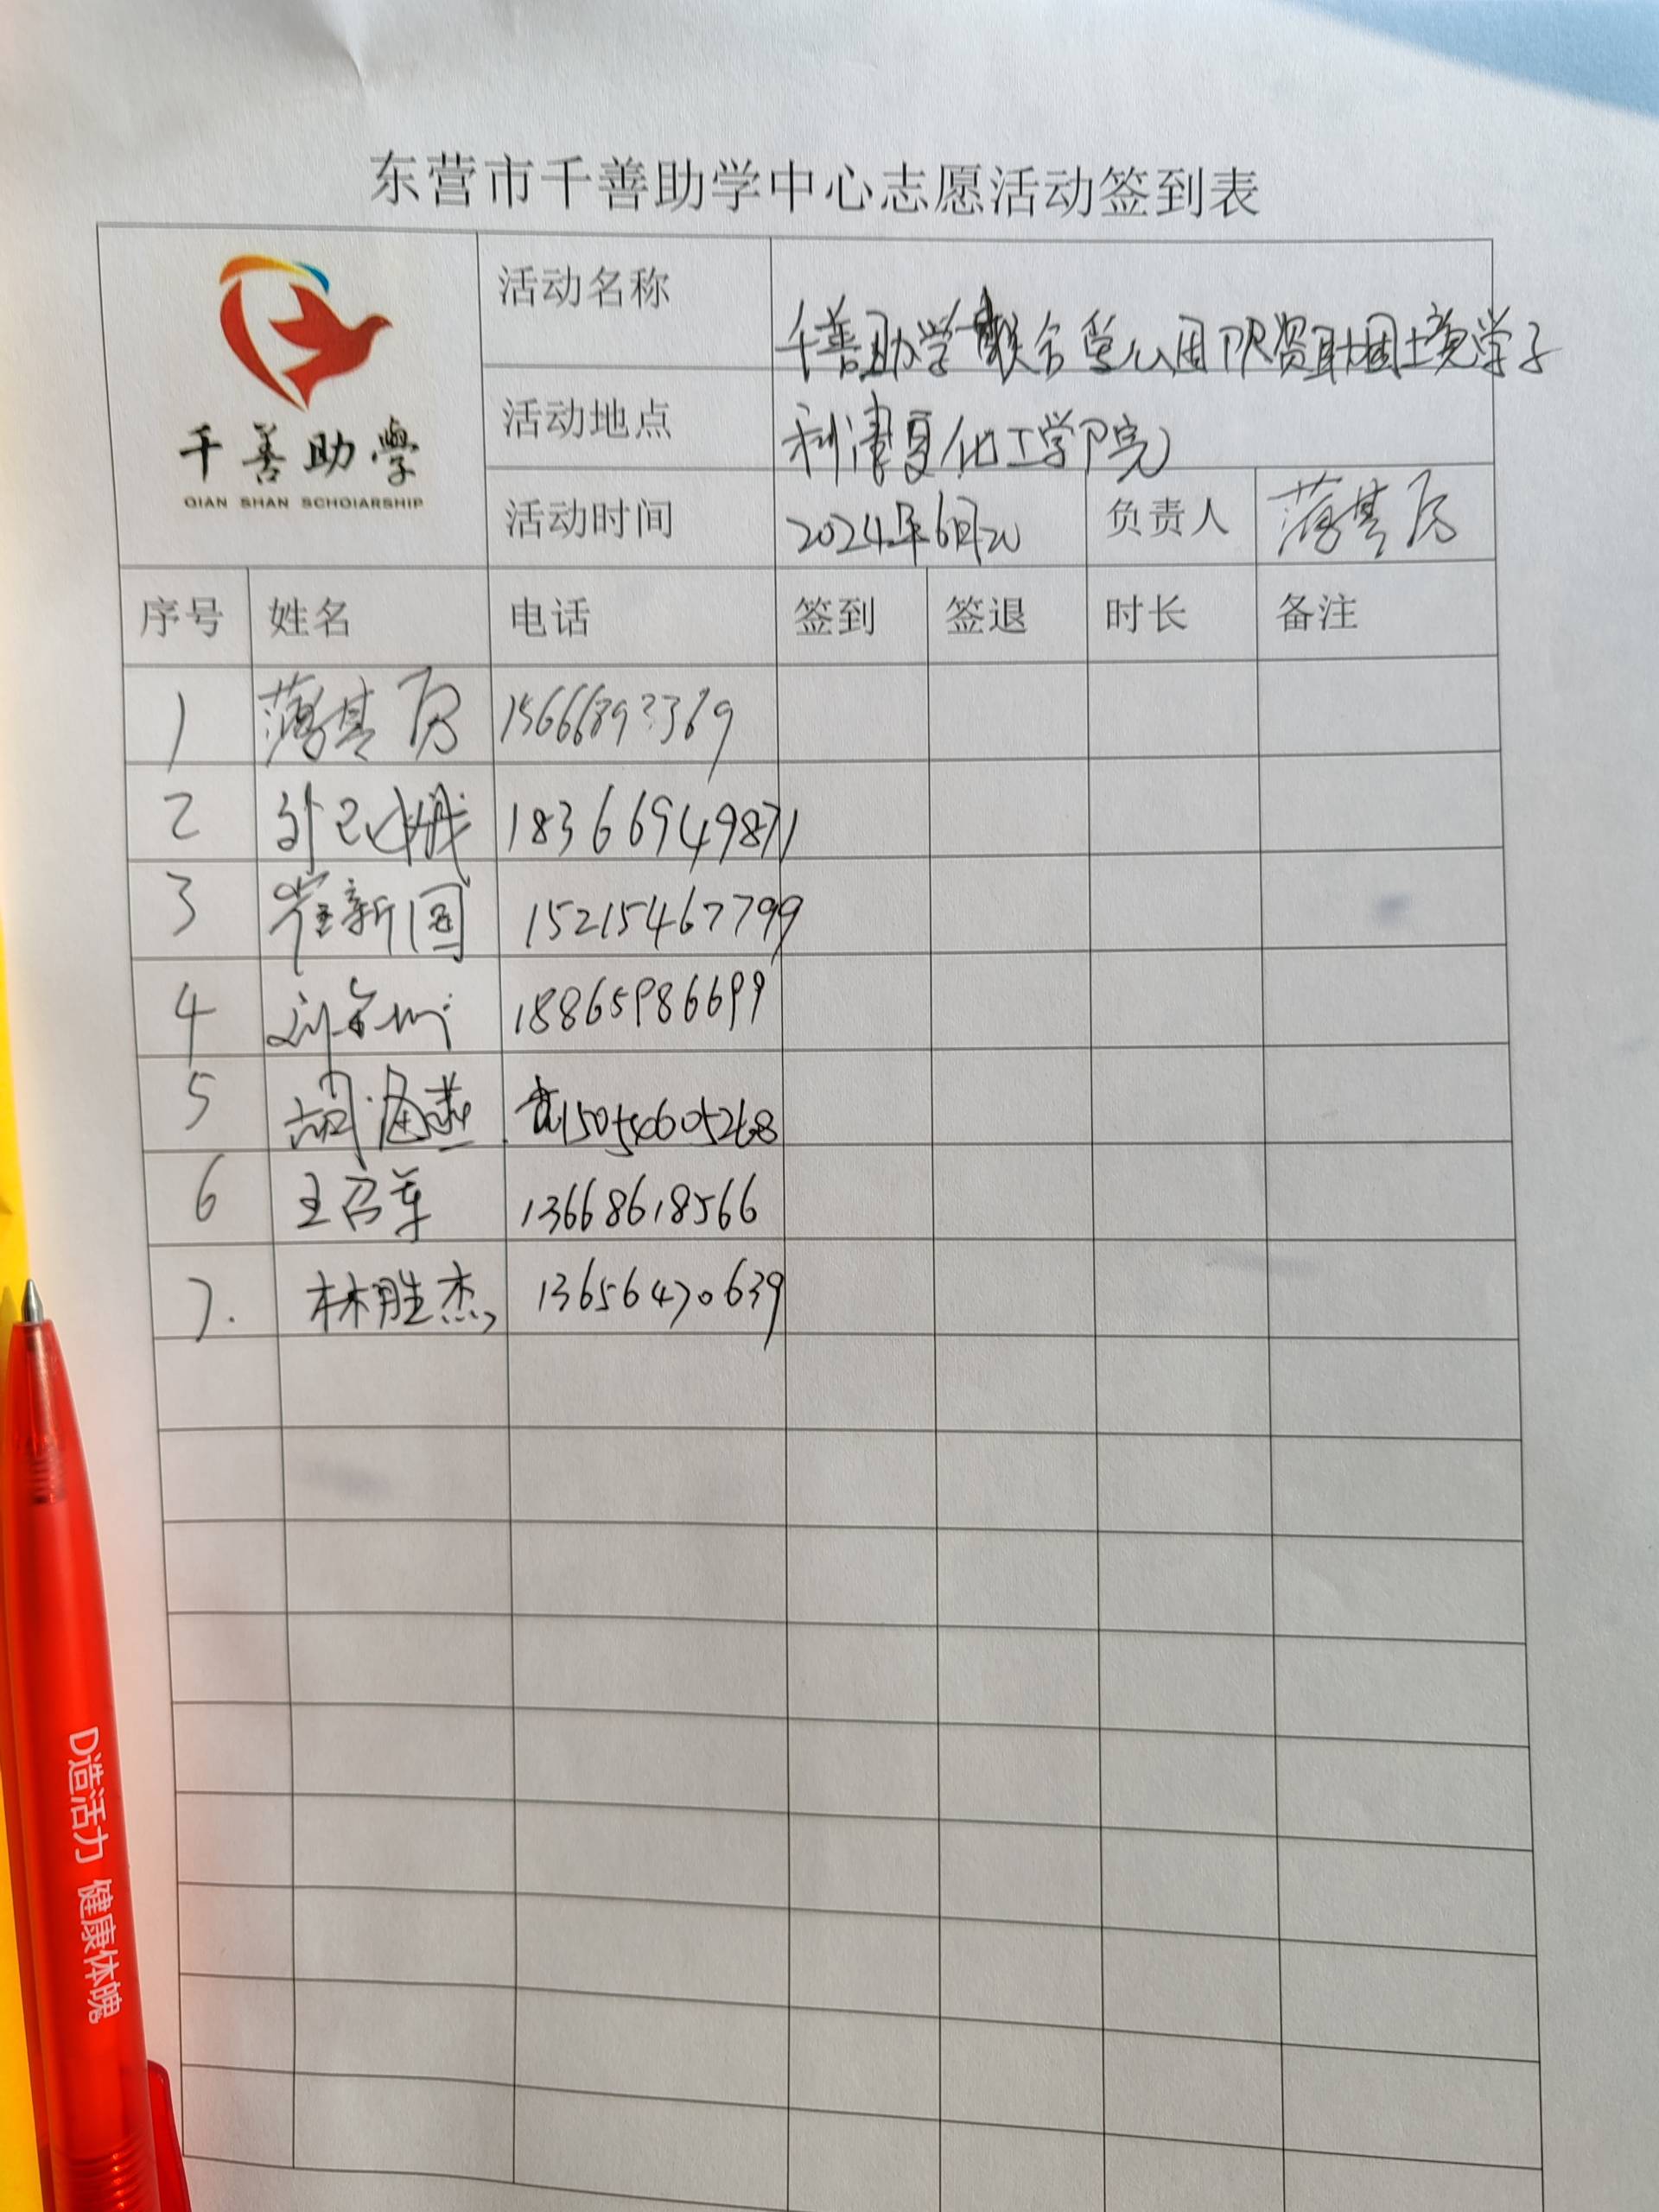 东营市千善助学中心志愿活动签到表
千善助学
QIAN SHAN SCHOIARSHIP
活动名称 千善助学联合 资助困境学子
活动地点 利津 化工学院
活动时间 2024年6月20 负责人 薄其
序号 姓名 电话 签到 签退 时长 备注
1 薄其 15666893369
2 18366949871
3 崔新国 15215467799
4 刘 18865986699
5 胡海燕 15054605268
6 王召军 13668618566
7. 林胜杰 13656470639
D造活力 健康体魄